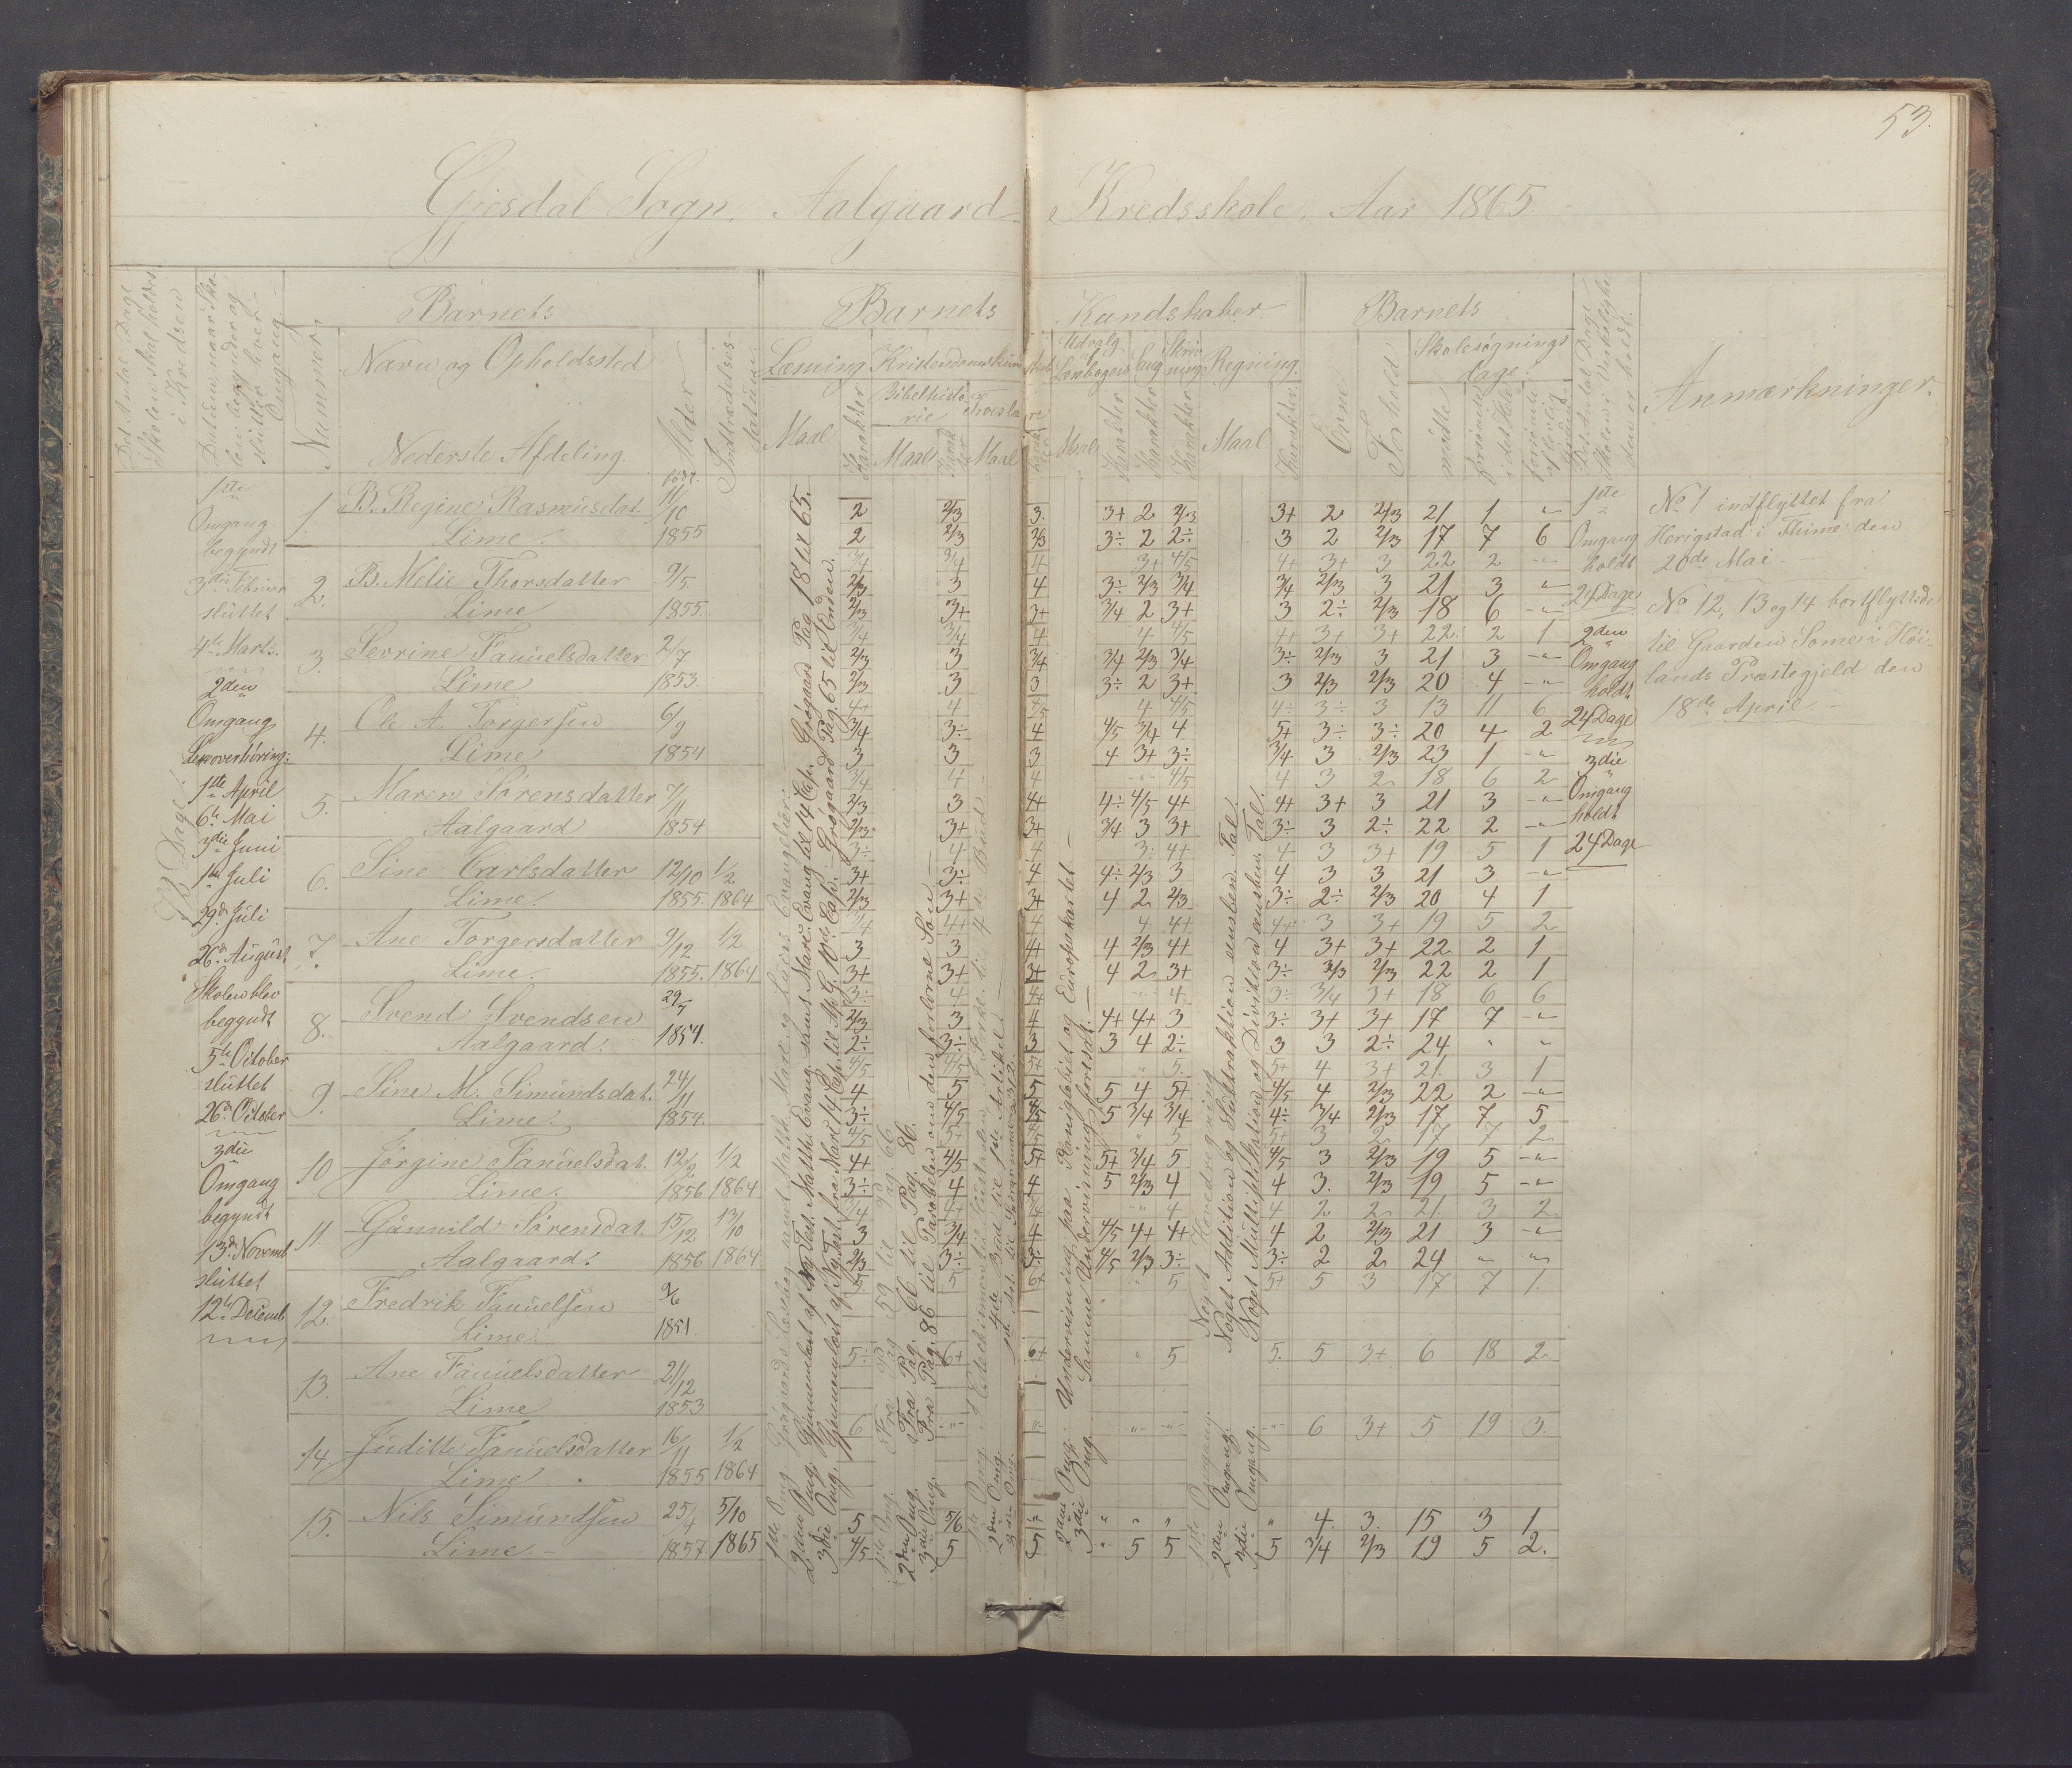 53.
Gjesdal Sogn. Aalgaard Kredsskole, Aar 1865
Det Antal Dage
Skolen skal holdes
i Kredsen
Datum naar Sko-
len begynder og
slutter hver
Omgang
Nummer
Barnets
Navn og Opholdssted
Nederste Afdeling.
Alder
født.
Indtrædelses
datum
Barnets Kundskaber.
Læsning
Maal
Karakter
Kristendomskundskab
Bibelhistorie
Maal
Karakter
Troeslære
Maal
Karakter
Udvalg
af
Læsebogen
Maal
Karakter
Sang
Karakter
Skriv
ning
Karakter
Regning.
Maal
Karakter
Barnets
Evne
Forhold
Skolesøgnings
dage.
mødte
forsømte
i det Hele
forsømte
af lovlig
Grund
Det Antal Dage
Skolen i Virkelighe
den er holdt.
Anmærkninger.
72 Dage.
1ste
Omgang
begyndt
3die Februar
sluttet
4de Marts.
2den
Omgang
Læseoverhøring:
1ste April
6te Mai
3die Juni
1ste Juli
29de Juli
26de August
Skolen blev
begyndt
5te October
sluttet
26de October
3die
Omgang
begyndt
13de Novemb
sluttet
12te Decemb
1. B. Regine Rasmusdat. 11/10
Lime. 1855
2. B. Melie Thorsdatter 9/5
Lime 1855.
3. Serrine Fanuelsdatter 2/7
Lime 1853.
4. Ole A. Torgersen 6/9
Lime 1854
5. Maren Sørensdatter 7/11
Aalgaard 1854
6. Sine Carlsdatter 12/10 1/2
Lime. 1855. 1864
7. Ane Torgersdatter 9/12 1/2
Lime. 1855. 1864
8. Svend Svendsen 29/5
Aalgaard. 1854.
9. Sine M. Simundsdat. 24/11
Lime. 1854.
10 Jørgine Fanuelsdat. 12/2 1/2
Lime. 1856 1864
11 Gunnild Sørensdat. 15/12 13/10
Aalgaard. 1856 1864
12. Fredrik Fanuelsen 9/6
Lime. 1851
13. Ane Fanuelsdatter 21/12
Lime 1853
14. Juditte Fanuelsdatter 16/11 1/2
Lime. 1855 1864
15. Nils Simundsen 25/4 5/10
Lime.- 1857 1865
2den Omg. Gjennemlæst af Ny Test. Matthæ Evang. samt Marc. Evang. til 14 Cap. Grøgaard Pag 18 til 65.
3die Omg. Gjennemlæst af Ny Test. fra Marc 14 Cap. til Ap. G. 10de Cap. Grøgaard Pag. 65 til Enden.
1ste Omg. Fra Pag 59 til Pag 66.
2den Omg. Fra Pag. 66 til Pag. 86.
3die Omg. Fra Pag. 86 til Parabelen om den forlorne Søn
2den Omg. Undervisning paa Planiglobiet og Europakartet.
3die Omg. Samme Undervisning fortsat.
1ste Omgang. Noget Hovedregning
2den Omgang. Noget Addition og Subtraktion eensben. Tal.
3die Omgang. Noget Multiplikation og Division eensben. Tal.
2 2/3 3. 3+ 2 2/3 3+ 2 2/3 21 1 "
2 2/3 2/3 3÷ 2 2÷ 3 2 2/3 17 7 6
3/4 3/4 4 3+ 4/5 4+ 3+ 3 22 2 "
2/3 3 4 3÷ 2/3 3/4 3/4 2/3 3 21 3 "
2/3 3+ 3+ 3/4 2 3+ 3 2÷ 2/3 18 6 "
3/4 3/4 4 4 4/5 4+ 3+ 3+ 22 2 1
2/3 3 3/4 3/4 2/3 3/4 3÷ 2/3 3 21 3 "
2/3 3 3 3÷ 2 3+ 3 2/3 2/3 20 4 "
4+ 4 4/5 4 4/5 4÷ 3÷ 3 13 11 6
3/4 3÷ 4 4/5 3/4 4 5+ 3÷ 3÷ 20 4 2
3 3 3 4 3+ 3÷ 3/4 3 2/3 23 1 "
3/4 4 4 " 4/5 4 3 2 18 6 2
2/3 3 4+ 4÷ 4/5 4+ 4+ 3+ 3 21 3 "
2/3 3+ 3+ 3/4 3 3+ 3÷ 3 2÷ 22 2 "
3÷ 4 4 3÷ 4+ 4 3 3+ 19 5 1
3+ 3÷ 4 4÷ 2/3 3 4 3 3 21 3 "
2/3 3+ 3+ 4 2 2/3 3÷ 2÷ 2/3 20 4 1
3/4 4+ 4 4 4+ 4+ 3 3+ 19 5 2
3 3 4+ 4 2/3 4+ 4 3+ 3+ 22 2 1
3+ 3+ 3+ 4 2 3+ 3÷ 2/3 2/3 22 2 1
3÷ 4 4+ " 4 3÷ 3/4 3+ 18 6 6
2/3 3 4 4+ 4+ 3 3÷ 3+ 3+ 17 7 "
2÷ 3÷ 3 3 4 2÷ 3 3 2÷ 24 " "
4/5 4/5 5+ " 5 5+ 4 3+ 21 3 1
4 5 5 5 4 5+ 4/5 4 2/3 22 2 "
3÷ 4/5 4/5 5 3/4 3/4 4÷ 3/4 2/3 17 7 5
4/5 5+ 4/5 " 5 5+ 3 2 17 7 2
4+ 4/5 5+ 5+ 3/4 5 4/5 3 2/3 19 5 "
3÷ 4 4 5 2/3 4 4 3. 2/3 19 5 "
3/4 4+ 3/4 " 4 4 2 2 21 3 2
3 3/4 4 4/5 4+ 4+ 4 2 2/3 21 3 "
2/3 3÷ 3÷ 4/5 2/3 3÷ 3÷ 2 2 24 " "
5 5 6+ " 5 5+ 5 3 17 7 1
5÷ 6+ 6+ " 5 5. 5 3+ 6 18 2
6 " " " " " 6 3+ 5 19 3.
5 5/6 " " " " " 4. 3. 15 3 1
4/5 5 5 " 5 5 5 3/4 2/3 19 5 2.
1ste
Omgang
holdt
24 Dage
2den
Omgang
holdt
24 Dage
3die
Omgang
holdt
24 Dage
No 1 indflyttet fra
Herigstad i Thime den
20de Mai
No 12, 13 og 14 bortflyttede
til Gaarden Some i Høi-
lands Præstegjeld den
18de April.